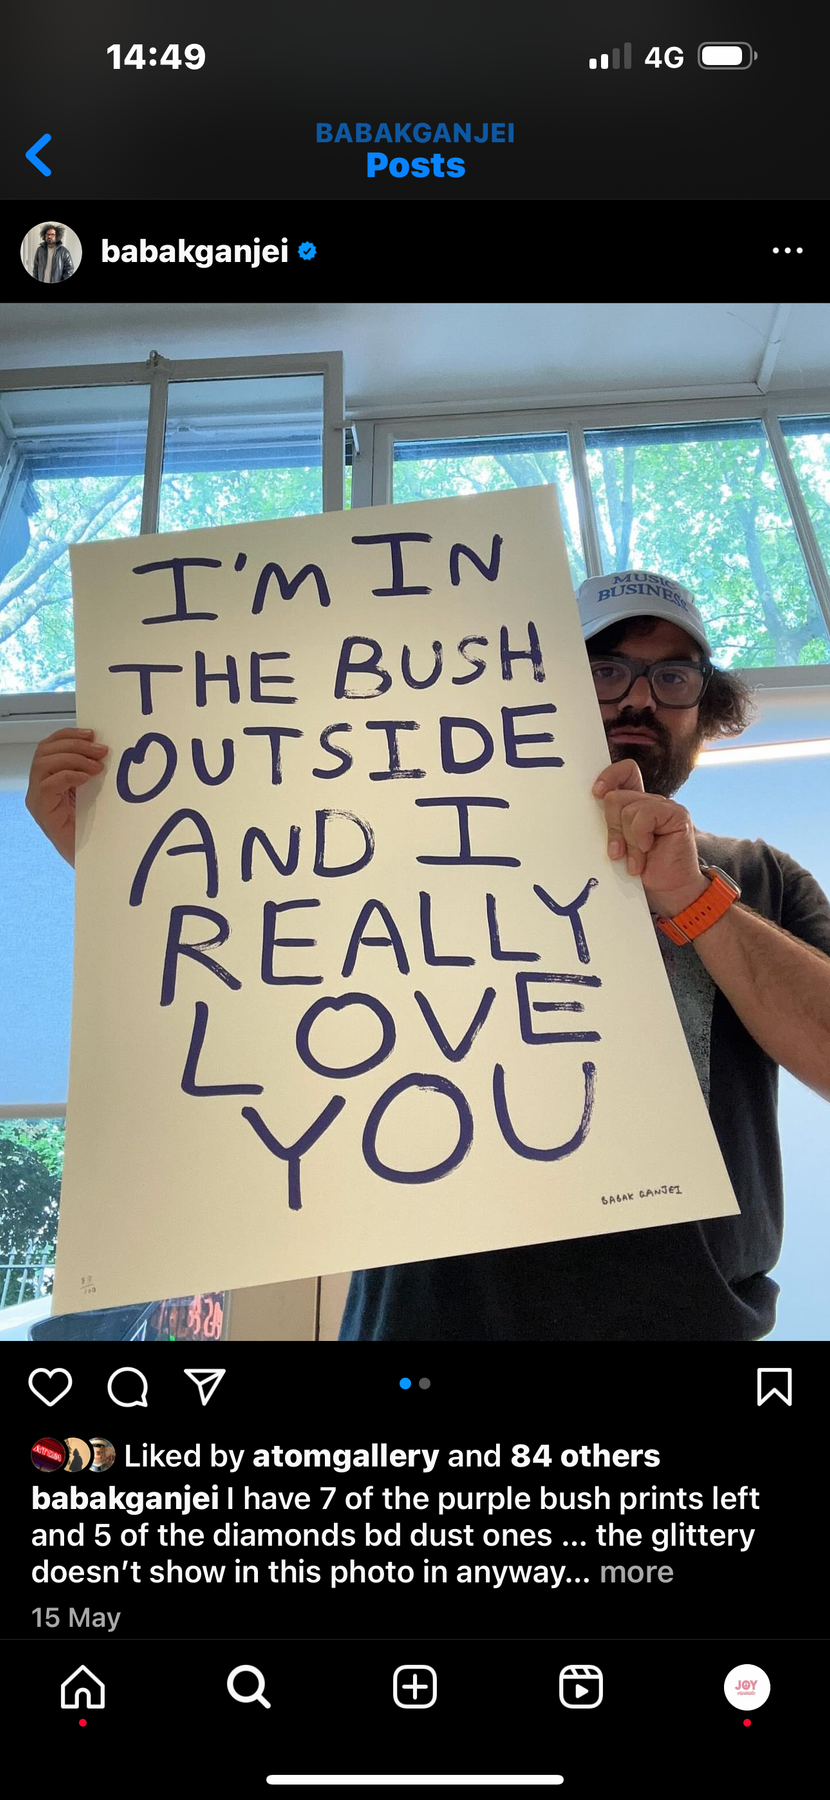 14:49
4G
BABAKGANJEI
Posts
babakganjei
MUSIC
BUSINESS
I'M IN
THE BUSH
OUTSIDE
AND I
REALLY
LOVE
YOU
BABAK GANJEI
Liked by atomgallery and 84 others
babakganjei I have 7 of the purple bush prints left
and 5 of the diamonds bd dust ones ... the glittery
doesn't show in this photo in anyway... more
15 May
JOY